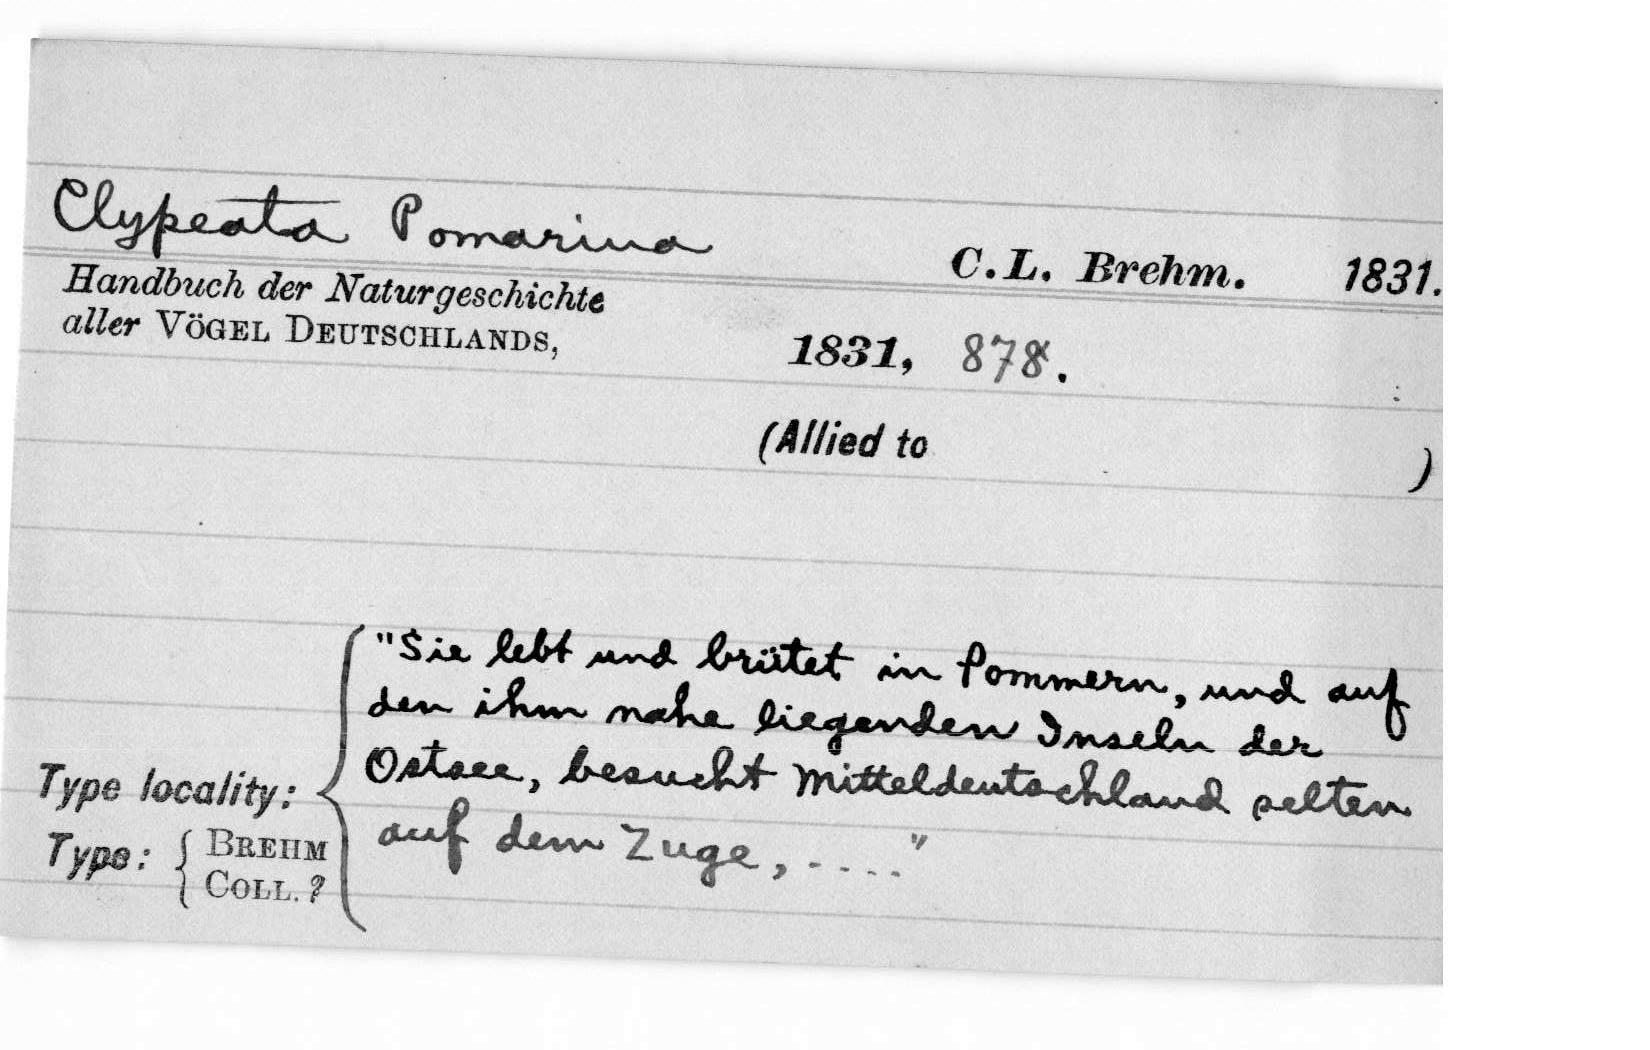 Clypeata Pomarina
C.L. Brehm. 1831.
Handbuch der Naturgeschichte
aller VÖGEL DEUTSCHLANDS,
1831, 878.
(Allied to )
"Sie lebt und brütet in Pommern, und auf
den ihm nahe liegenden Inseln der
Ostsee, besucht Mitteldeutschland selten
auf dem Zuge, ....."
Type locality:
Type: { BREHM
COLL. ?